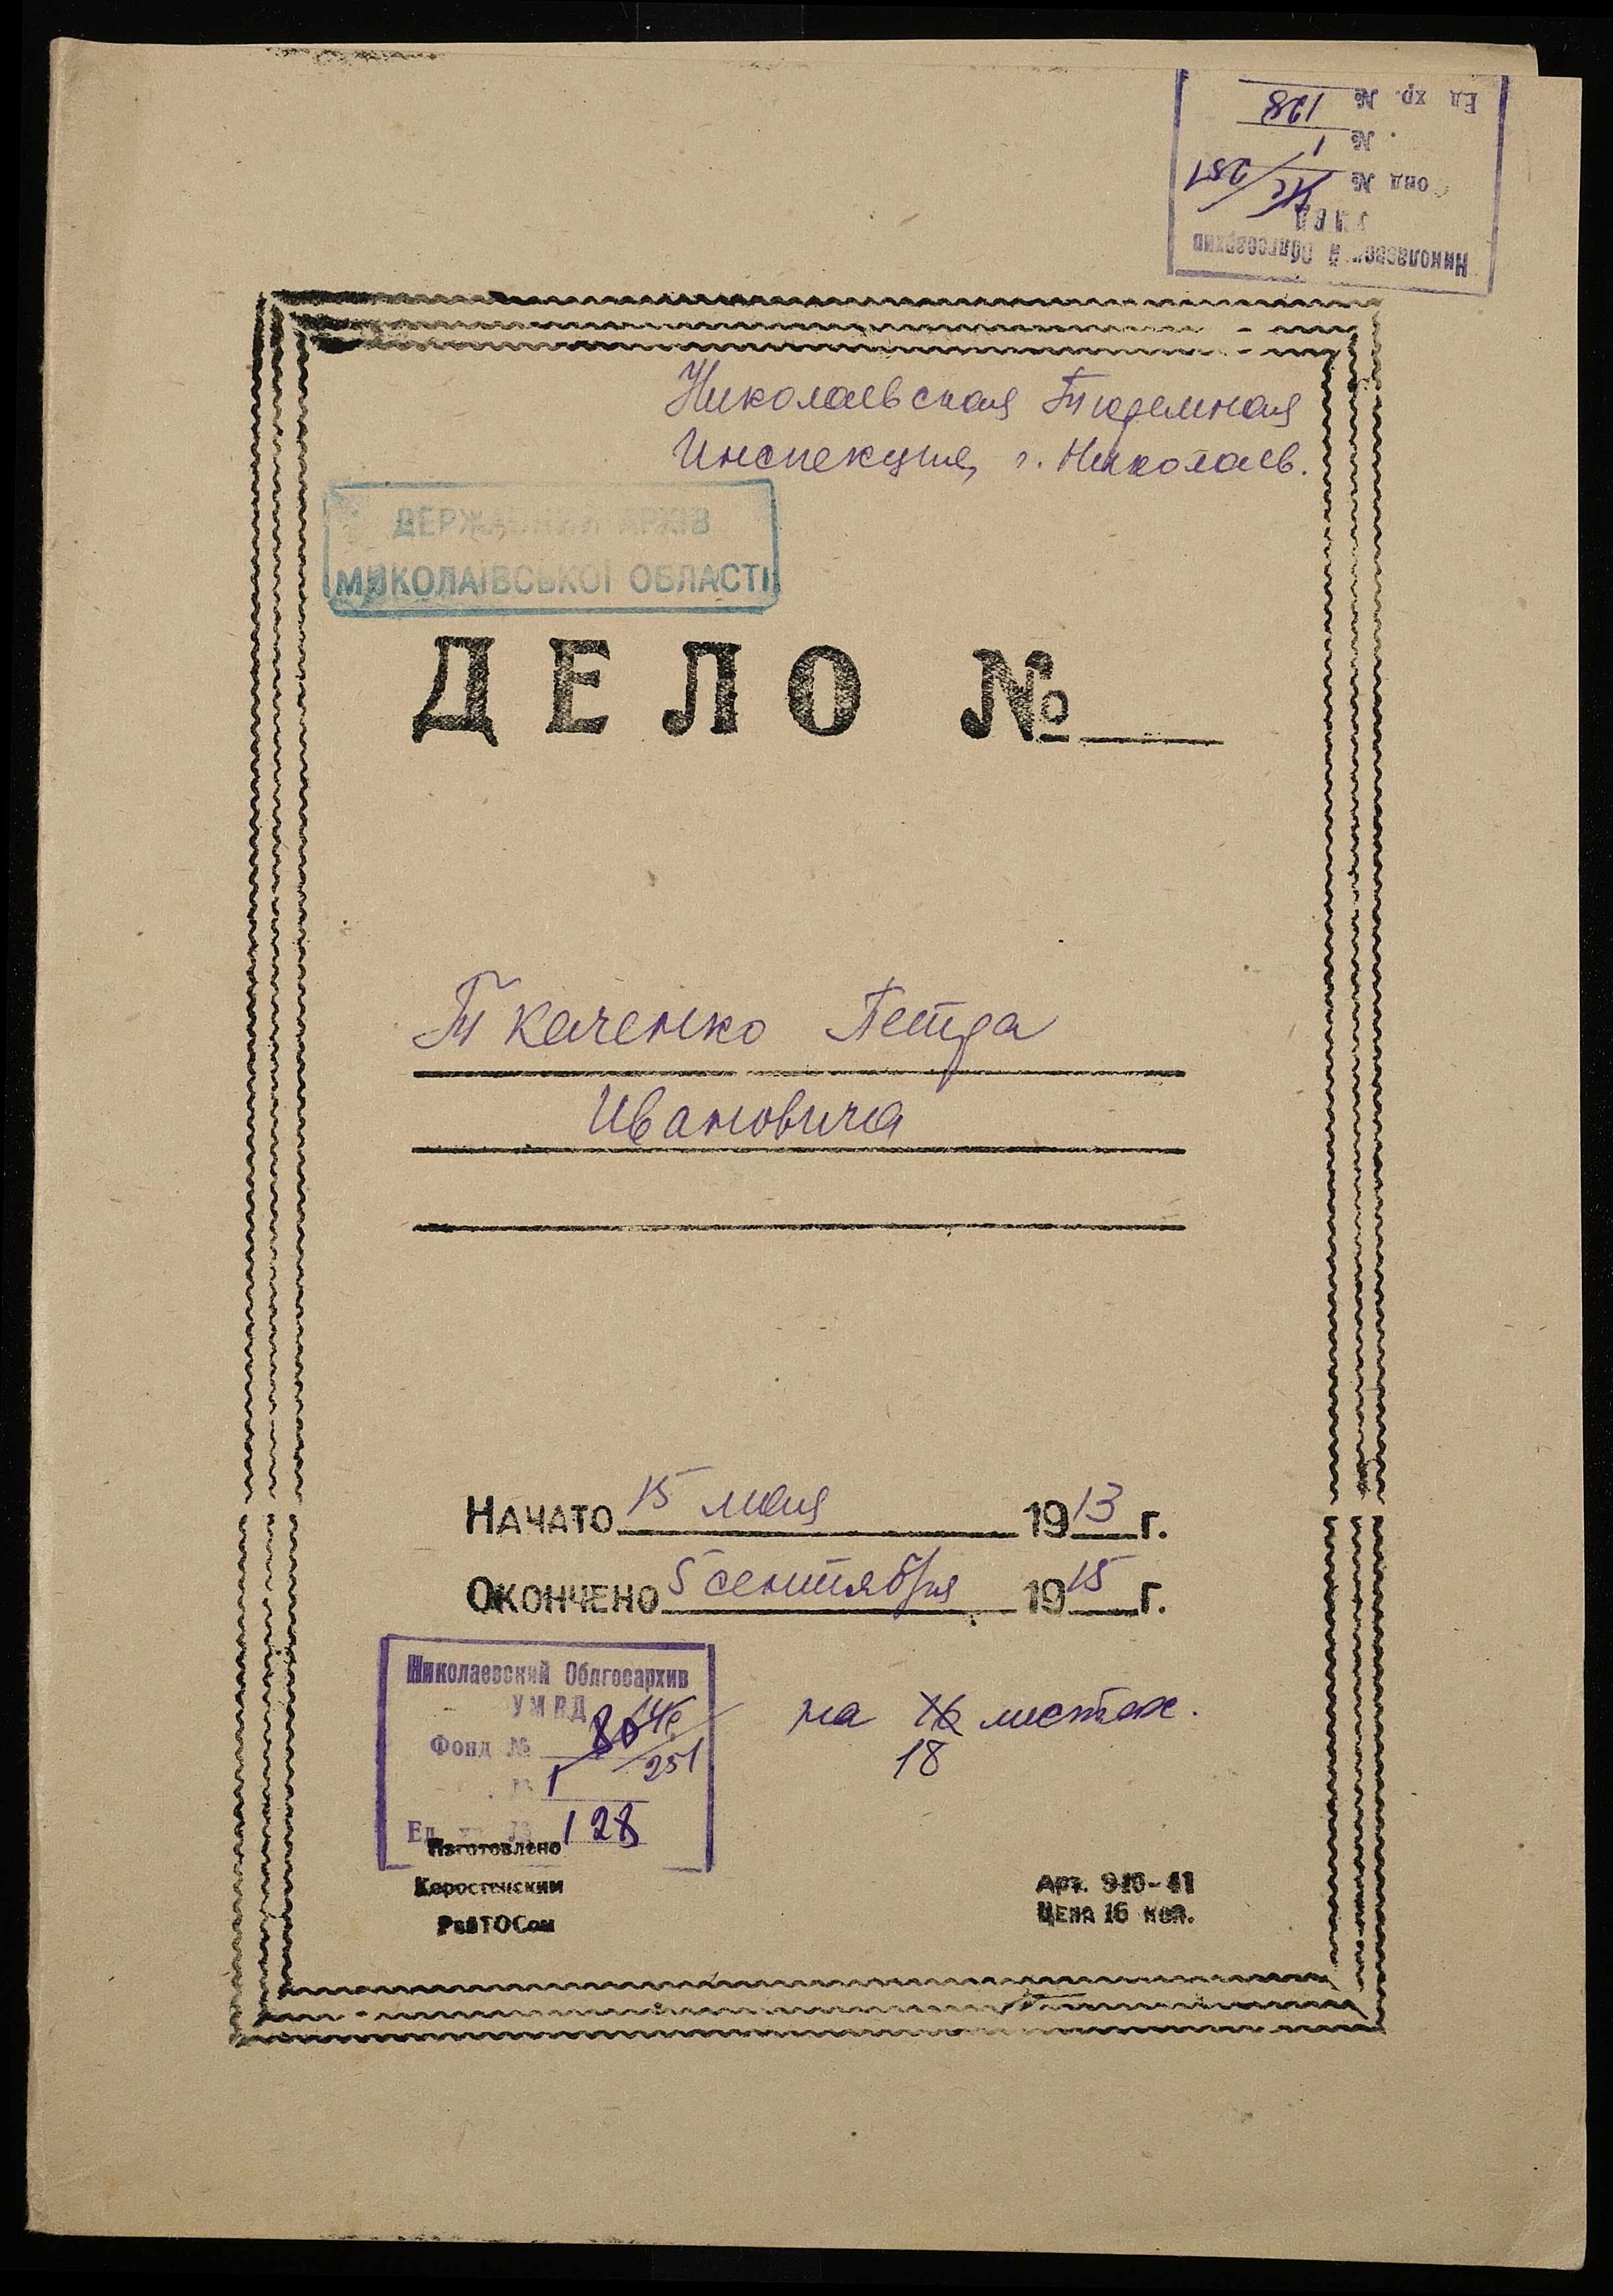 Ед хр. № 128
. № 1
Фонд № 251
УМВД
Николаевский Облгосархив
Николаевская Тюремная
Инспекция, г. Николаев.
ДЕРЖАВНИЙ АРХІВ
МИКОЛАЇВСЬКОЇ ОБЛАСТІ
ДЕЛО №
Ткаченко Петра
Ивановича
НАЧАТО 15 мая 1913 г.
ОКОНЧЕНО 5 сентября 1915 г.
Николаевский Облгосархив
УМВД
Фонд № 251
1
Ед 128
на 16 листах.
18
Изготовлено
Коростенским
РайТОСом
Арт. 940-41
Цена 16 коп.